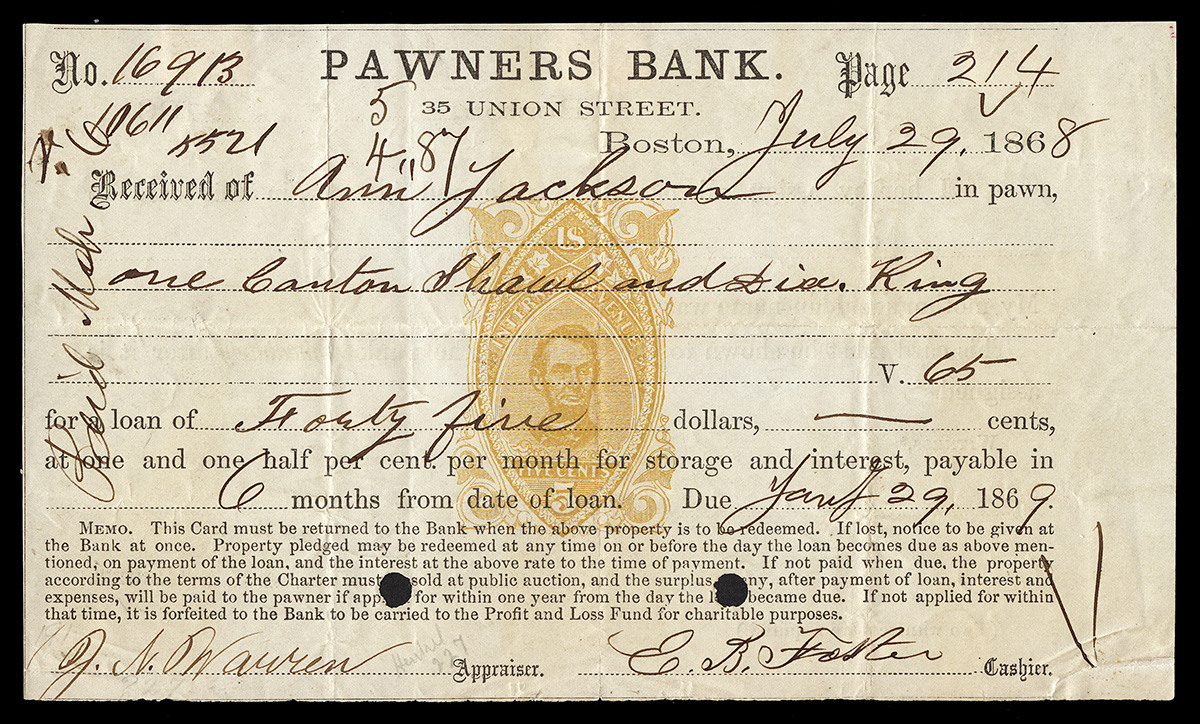 No. 16913 PAWNERS BANK. Page 214
35 UNION STREET.
10611 5521 5
4 " 87
Boston, July 29, 1868
Received of Ann Jackson in pawn,
US
INTER. REVENUE
one Canton Shawl and Dia. Ring
V. 65
for a loan of Forty five dollars, — cents,
at one and one half per cent. per month for storage and interest, payable in
FIVE CENTS
5
6 months from date of loan. Due Jany 29, 1869.
MEMO. This Card must be returned to the Bank when the above property is to be redeemed. If lost, notice to be given at
the Bank at once. Property pledged may be redeemed at any time on or before the day the loan becomes due as above men-
tioned, on payment of the loan, and the interest at the above rate to the time of payment. If not paid when due, the property
according to the terms of the Charter must sold at public auction, and the surplus, any, after payment of loan, interest and
expenses, will be paid to the pawner if app for within one year from the day the l became due. If not applied for within
that time, it is forfeited to the Bank to be carried to the Profit and Loss Fund for charitable purposes.
J. N. Warren Appraiser. E. B. Foster Cashier.
Paid